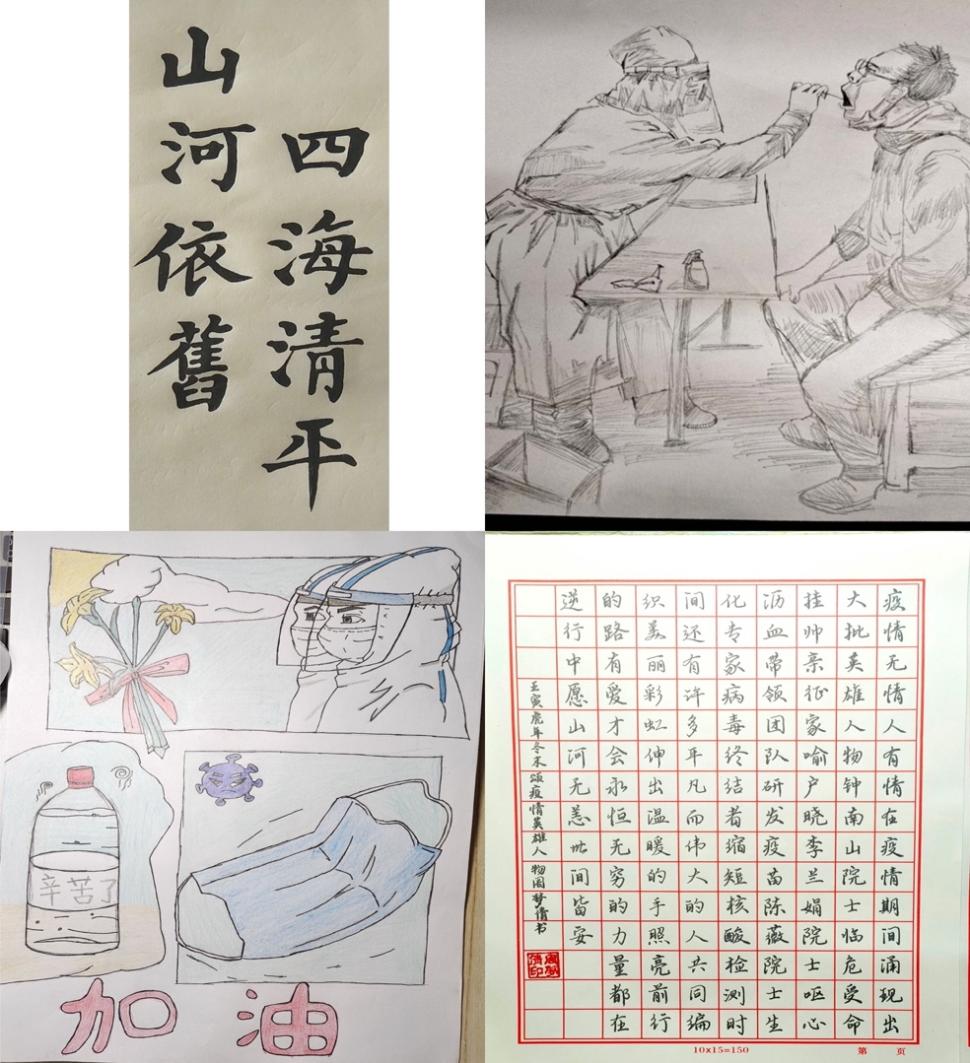 山河依舊
四海清平
辛苦了
加油
疫情无情人有情在疫情期间涌现出
大批英雄人物钟南山院士临危受命
挂帅亲征家喻户晓李兰娟院士呕心
沥血带领团队研发疫苗陈薇院士生
化专家病毒终结者缩短核酸检测时
间还有许多平凡而伟大的人共同编
织美丽彩虹伸出温暖的手照亮前行
的路有爱才会永恒无穷的力量都在
逆行中愿山河无恙世间皆安
壬寅虎年冬末颂疫情英雄人物周梦倩书
10x15=150
第 页